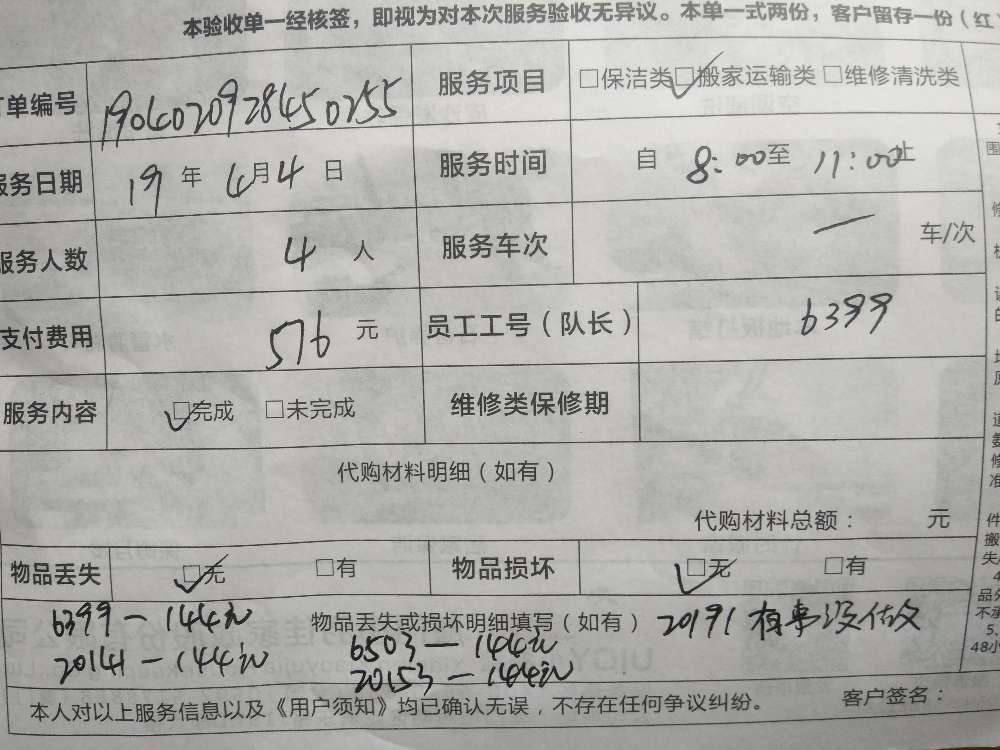 本验收单一经核签，即视为对本次服务验收无异议。本单一式两份，客户留存一份（红
订单编号 190402092845 0255 服务项目 □保洁类 ☑搬家运输类 □维修清洗类
服务日期 19 年 4月4 日 服务时间 自 8:00至 11:00止
服务人数 4 人 服务车次 一 车/次
支付费用 576 元 员工工号（队长） 6399
服务内容 ☑完成 □未完成 维修类保修期
代购材料明细（如有）
代购材料总额： 元
物品丢失 ☑无 □有 物品损坏 ☑无 □有
6399-144元 物品丢失或损坏明细填写（如有） 20191 有事没
20141-144元 6503-144元
20153-144元
本人对以上服务信息以及《用户须知》均已确认无误，不存在任何争议纠纷。 客户签名：